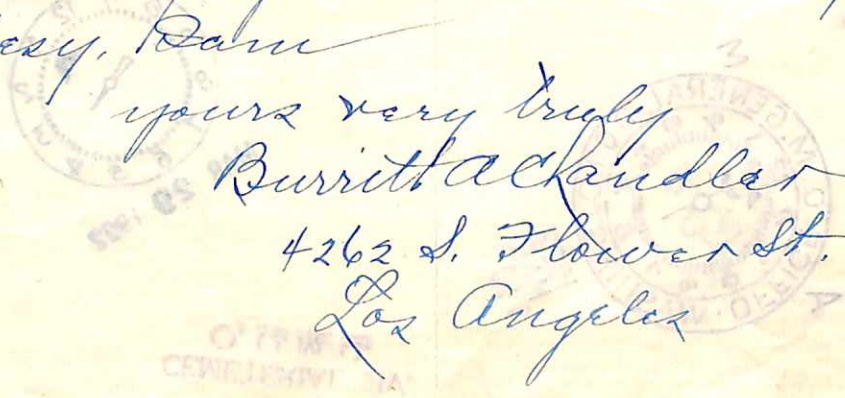 esy, I am
yours very truly
Burritt A Chandler
4262 S. Flower St.
Los Angeles